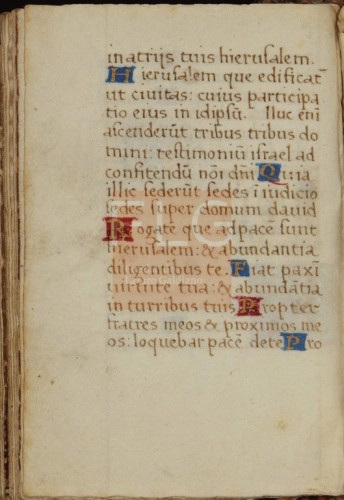 in atrijs tuis hierusalem.
Hierusalem que edificat̃
ut civitas: cuius participa
tio eius in idipsũ. Iluc eñi
ascenderũt tribus tribus do
mini: testimoniũ israel ad
confitendũ nõi dñi Quia
illic sederũt sedes ĩ iudicio
sedes super domum david
Rogate que ad pacẽ sunt
hierusalem: & abundantia
diligentibus te. Fiat pax ĩ
uirtute tua: & abundãtia
in turribus tuis Propter
fratres meos & proximos me
os: loquebar pacẽ de te Pro